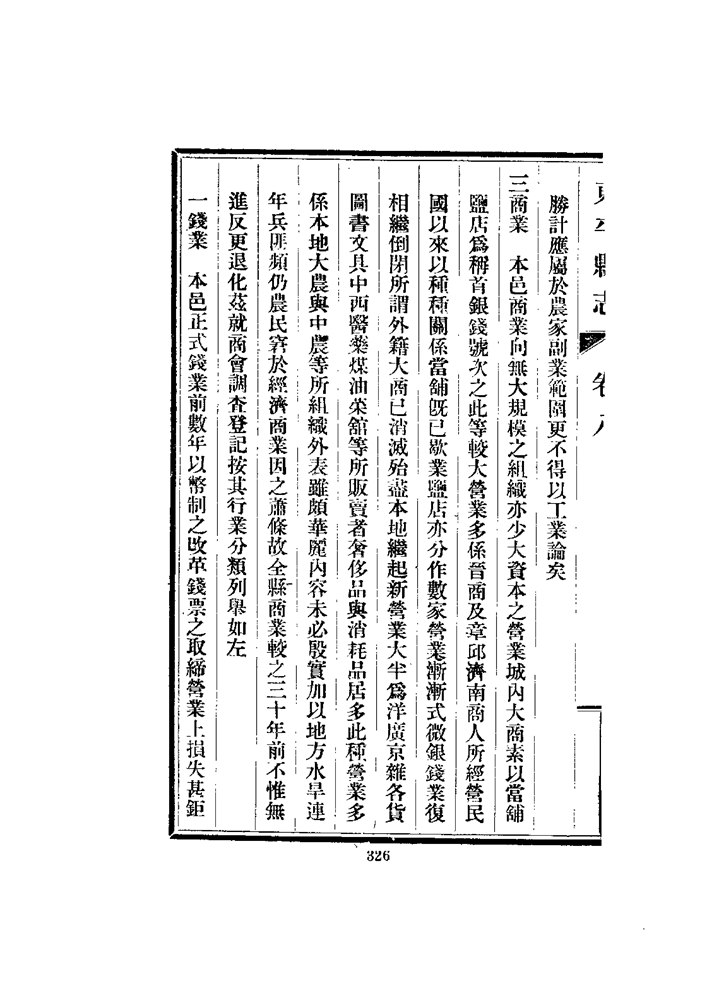 東平縣志 卷八
勝計應屬於農家副業範圍更不得以工業論矣
三商業　本邑商業向無大規模之組織亦少大資本之營業城內大商素以當舖
鹽店爲稱首銀錢號次之此等較大營業多係晉商及章邱濟南商人所經營民
國以來以種種關係當舖旣已歇業鹽店亦分作數家營業漸漸式微銀錢業復
相繼倒閉所謂外籍大商已消滅殆盡本地繼起新營業大半爲洋廣京雜各貨
圖書文具中西醫藥煤油菜館等所販賣者奢侈品與消耗品居多此種營業多
係本地大農與中農等所組織外表雖頗華麗內容未必殷實加以地方水旱連
年兵匪頻仍農民窘於經濟商業因之蕭條故全縣商業較之三十年前不惟無
進反更退化茲就商會調査登記按其行業分類列舉如左
一錢業　本邑正式錢業前數年以幣制之改革錢票之取締營業上損失甚鉅
326